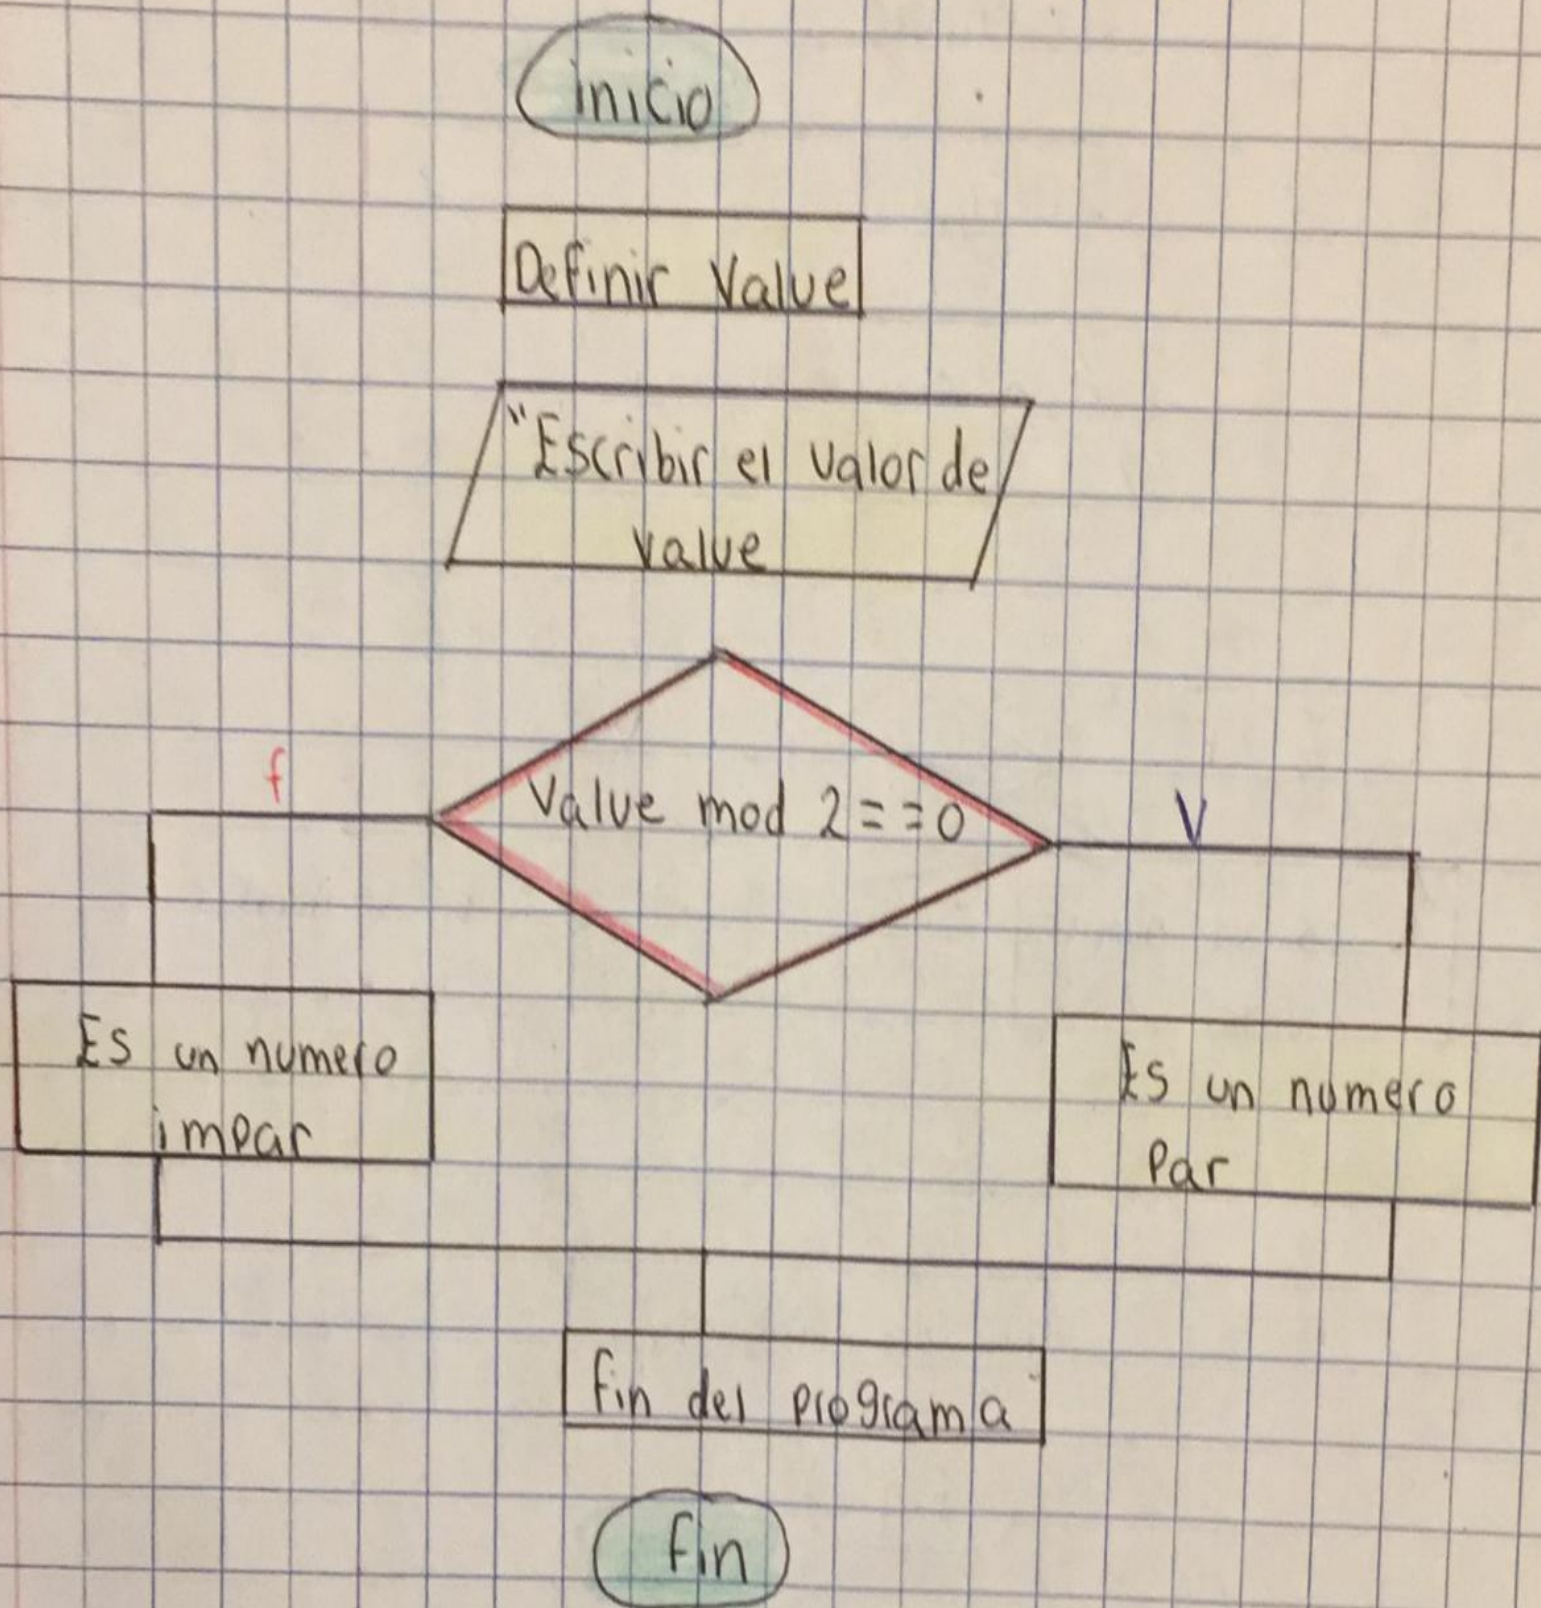 inicio
Definir Value
"Escribir el valor de
value
f
Value mod 2==0
V
Es un numero
impar
Es un numero
Par
fin del programa
fin